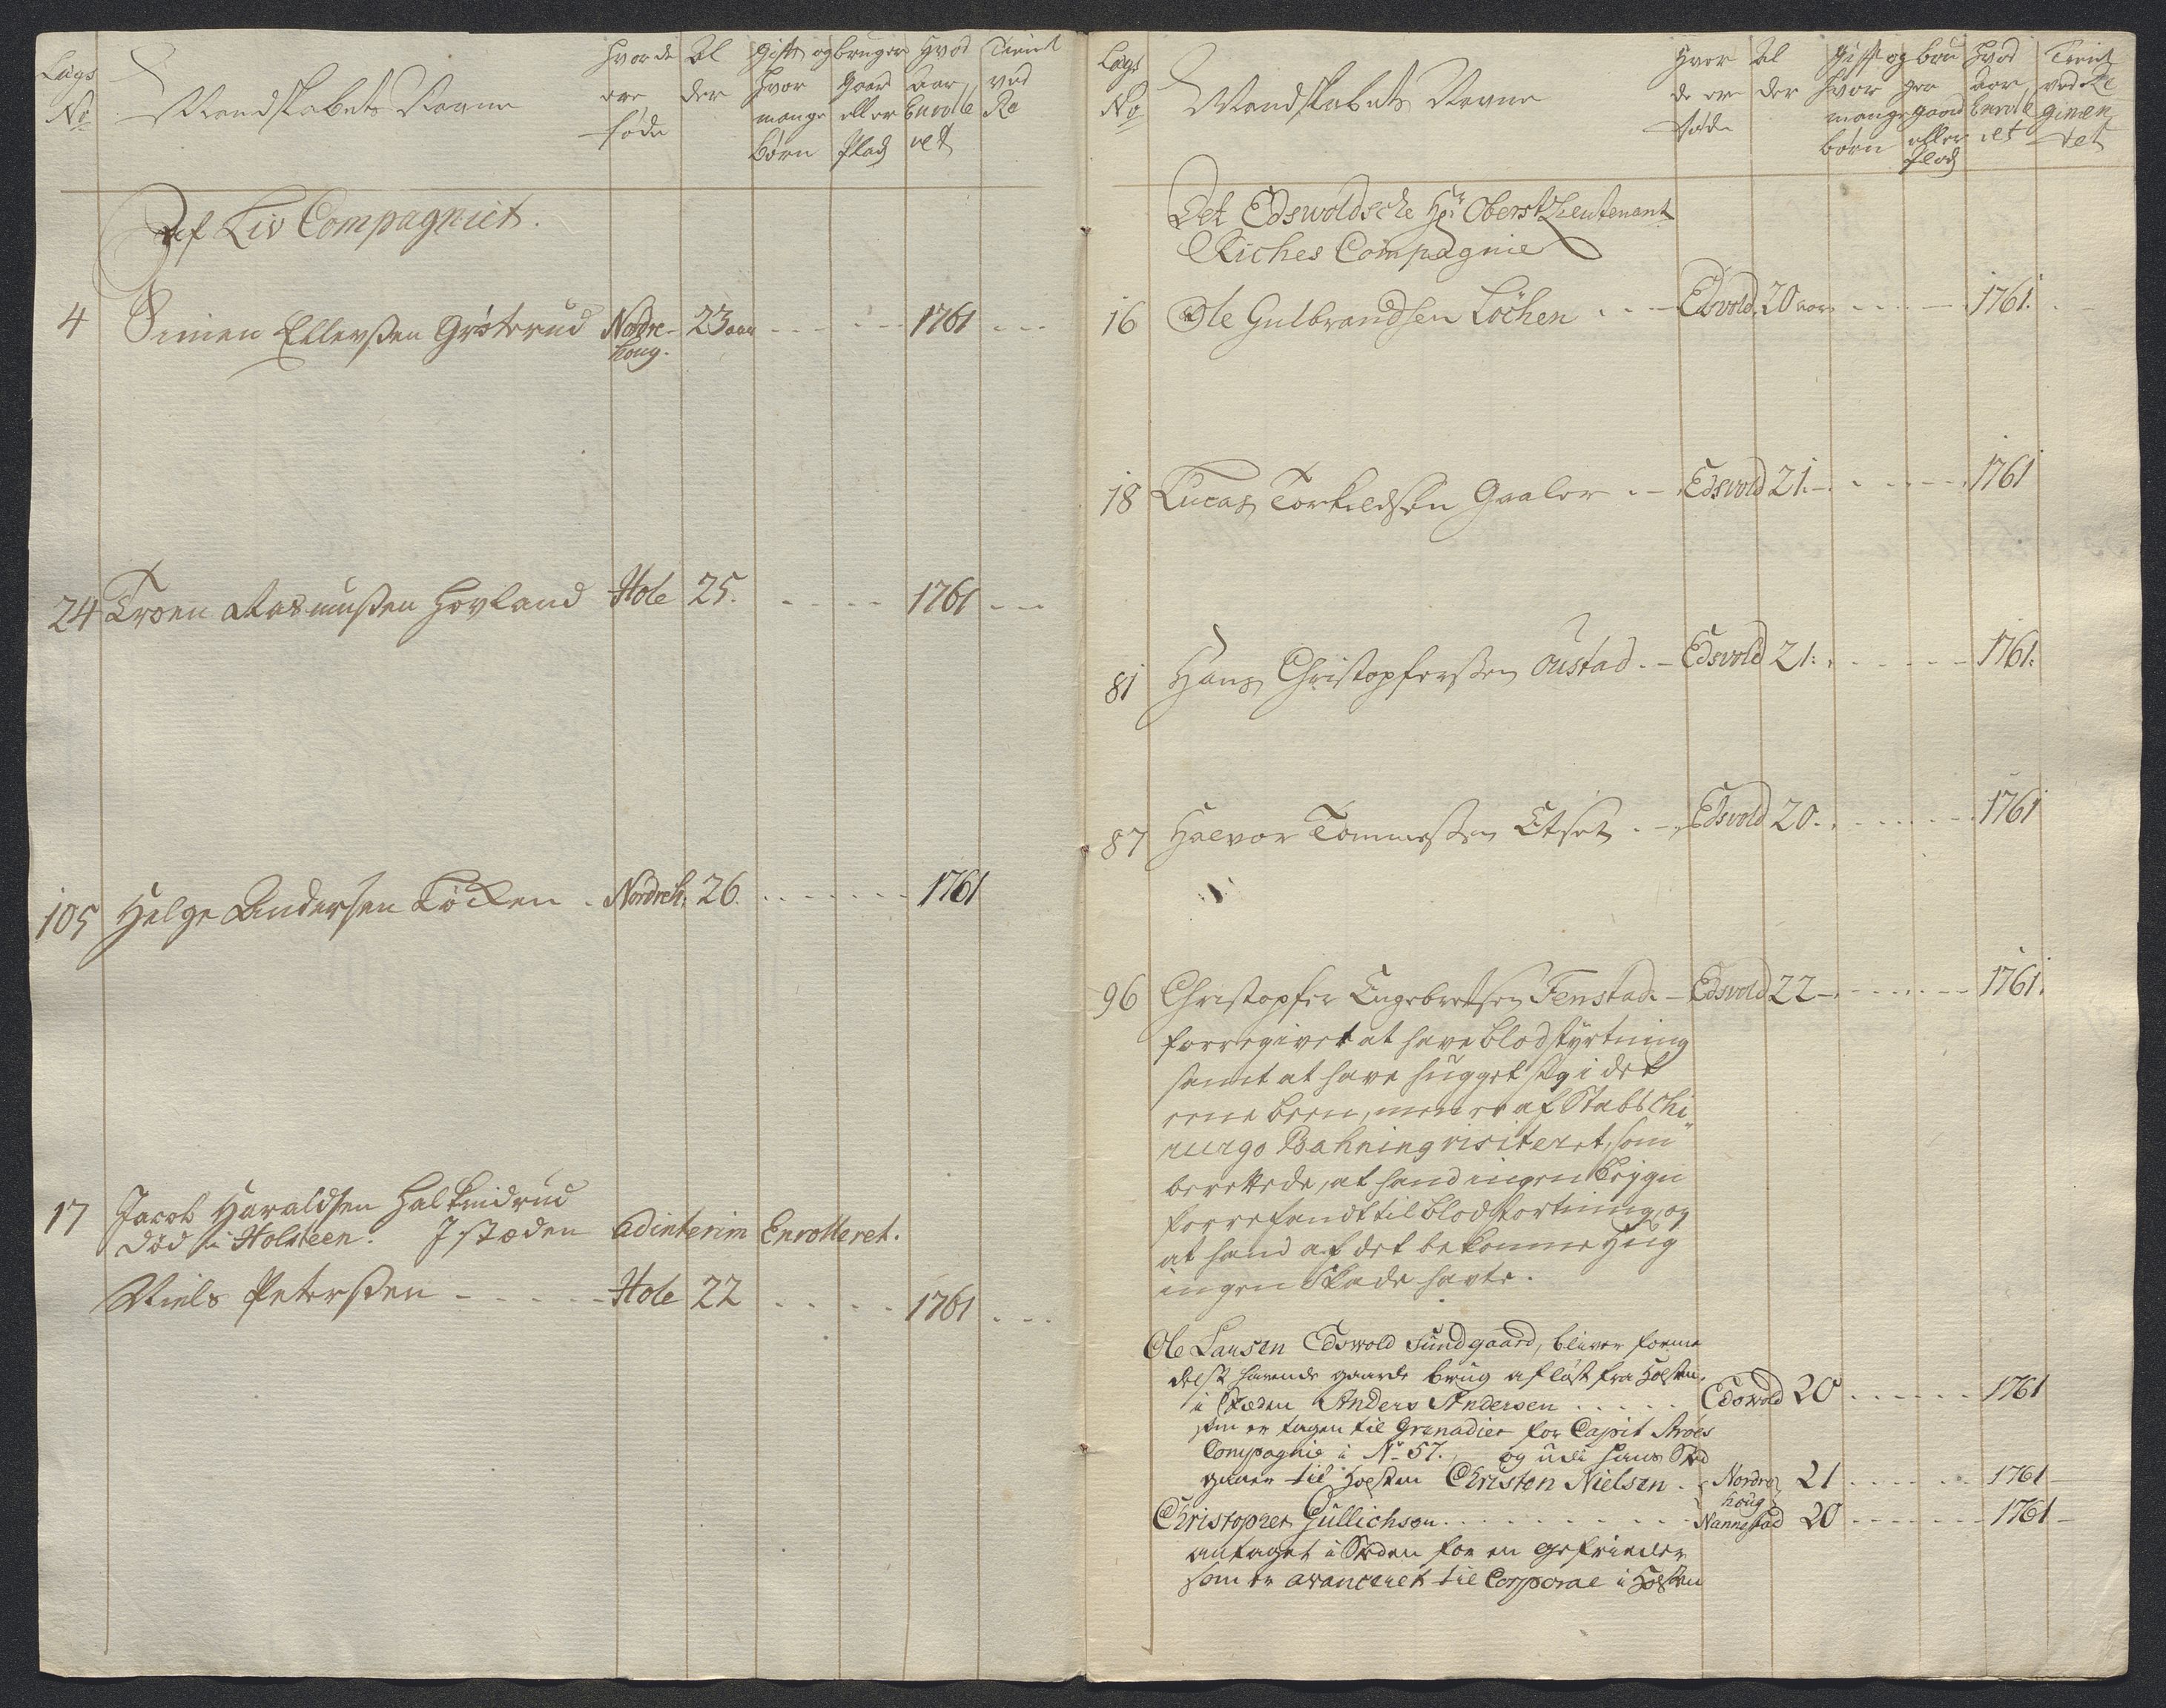 Lægs No Mandskabets Navne Hvor de ere føde Alder Gift og hvor mange børn bruger Gaard eller Plads Hvad Aar Enrolleret Tient ved Re
Af Liv Compagniet.
4 Simen Ellersen Grøterud Nordre- 23 aar - - - - 1761 - - -
houg.
24 Troen Rasmusen Hovland Hole 25. - - - - 1761 - - -
105 Helge Andersen Løcken . Nordreh. 26. - - - - - - 1761
17 Jacob Haraldsen Halkinrud
død i Holsteen. I stæden adinterim Enrolleret.
Niels Petersen - - - - - Hole 22 - - - - 1761 - - -
Lægs No Mandskabets Navne Hvor de ere føde Alder Gift og hvor mange børn bruger gaard eller plads Hvad Aar Enrolleret Tient ved Regimentet
Det Edswoldsche Hr Oberst Lieutenant
Riches Compagnie
16 Ole Gulbrandsen Löchen . . - Edsvold. 20 aar. - - - - 1761.
18 Lucas Torkildsen Gaaler . - Edsvold 21. - - - - - 1761
81 Hans Christophersen Oustad . - Edsvold 21: - - - - - 1761.
87 Halvor Tommesen Etset . - Edsvold 20. - - - - - 1761
96 Christopher Engebretsen Fenstad. - Edsvold 22 - - - - - 1761.
forregivet at have blodstyrtning
samt at have hugget sig i det
eene been, men er af Stabs Chi
rurgo Bahning visiteret, som
berettede, at hand ingen tegn
forrefandt til blodstortning, og
at hand af det bekomne Hug
ingen Skade havte.
Ole Larsen Edswold Sundgaard, bliver forme
delst havende gaards brug afløst fra Holsten,
i stæden Anders Andersen . . . . . Edswold 20 . - - - - 1761
som er tagen til Grenadier for Capit
Compagnie i No 57., og udi hans Sted
gaaer til Holsten Christen Nielsen . Nordre 21 - - - - - 1761 -
houg
Christopher Gullichsen . . . . . . . . Nannestad 20 - - - - - 1761 -
antaget i Steden for en gefrieder
som er avanceret til Corporal i Holsten